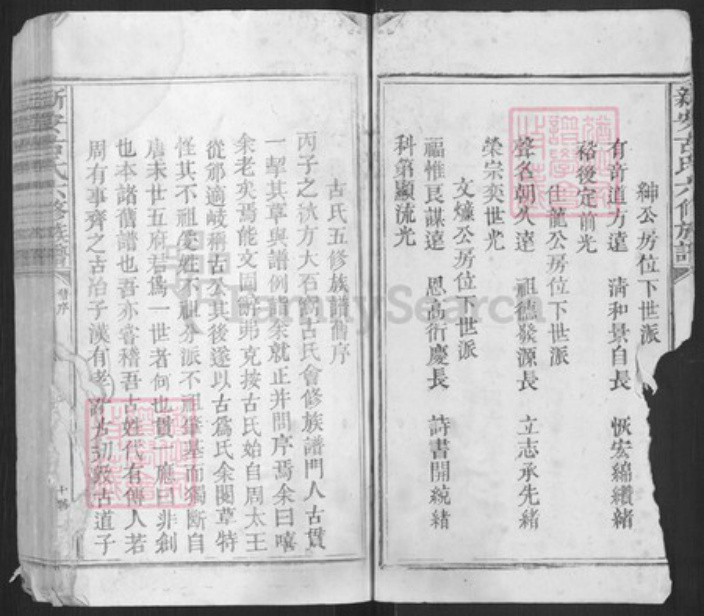 新安古氏六修族譜
紳公房位下世派
有奇道方遠 清和景自長 恢宏綿纘緒
裕後定前光
仕龍公房位下世派
聲名朝久遠 祖德發源長 立志承先緒
榮宗奕世光
文爐公房位下世派
福惟良謀遠 恩高衍慶長 詩書開統緒
科第顯流光
古氏五修族譜舊序
丙子之秋方大石窩古氏會修族譜門人古貫
一挈其草與譜例詣余就正并問序焉余曰嘻
余老矣焉能文固辭弗克按古氏始自周太王
從邠適岐稱古公其後遂以古為氏余閱草特
怪其不祖受姓不祖分派不祖肇基而獨斷自
唐末世五府君為一世者何也貫一應曰非創
也本諸舊譜也吾亦嘗稽吾古姓代有傳人若
周有事齊之古冶子漢有孝初敦古道子
新安古氏六修族譜
舊序
十
FamilySearch